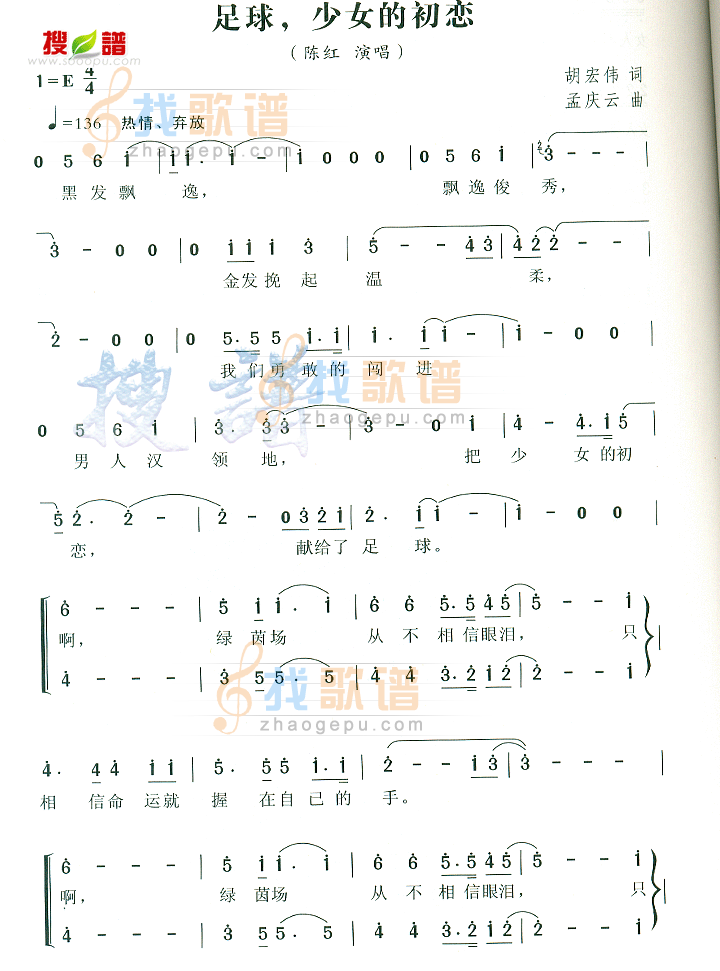 足球，少女的初恋
搜谱
www.sooopu.com
（陈红 演唱）
1=E 4/4
胡宏伟 词
孟庆云 曲
♩=136 热情、弃放
找歌谱
zhaogepu.com
0 5 6 i | i i. i - | i 0 0 0 | 0 5 6 i | 3 - - -
黑发飘 逸， 飘逸俊 秀，
3 - 0 0 | 0 i i i 3 | 5 - - 4 3 | 4 2 2 - -
金发挽 起 温 柔，
2 - 0 0 | 0 5. 5 5 i. i | i. i i i - | i - 0 0
我们勇敢的 闯 进
搜谱
找歌谱
zhaogepu.com
0 5 6 i | 3. 3 3 - | 3 - 0 0 | 4 - 4. i 5
男人汉 领 地， 把 少 女的初
5 2. 2 - | 2 - 0 3 2 i | 2. i i - | i - 0 0
恋， 献给了 足 球。
6 - - - | 5 i i. i | 6 6 5. 5 4 5 | 5 - - i
啊， 绿 茵场 从 不 相信眼泪， 只
4 - - - | 3 3 5. 5 | 4 4 3. 2 i 2 | 2 - - i
找歌谱
zhaogepu.com
4. 4 4 i i | 5. 5 5 i. i | 2 - - i 3 | 3 - - -
相 信命 运就 握 在自己的 手。
6 - - - | 5 i i. i | 6 6 5. 5 4 5 | 5 - - i
啊， 绿 茵场 从 不 相信眼泪， 只
4 - - - | 3 3 5. 5 | 4 4 3. 2 i 2 | 2 - - i